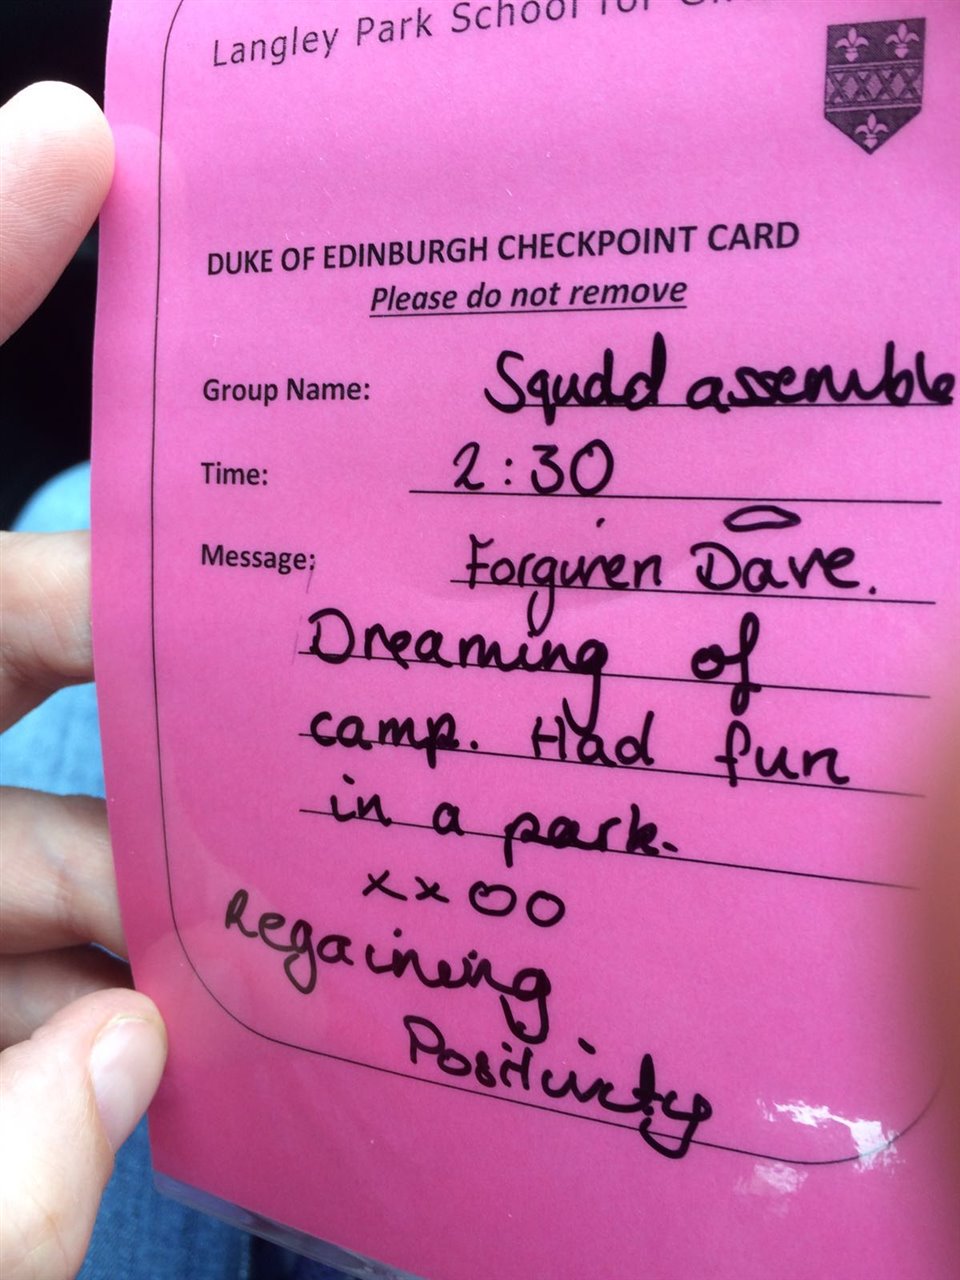 Langley Park School for
DUKE OF EDINBURGH CHECKPOINT CARD
Please do not remove
Group Name: Squdd assemble
Time: 2:30
Message: Forgiven Dave.
Dreaming of
camp. Had fun
in a park.
xxOO
Regaining
Positivity